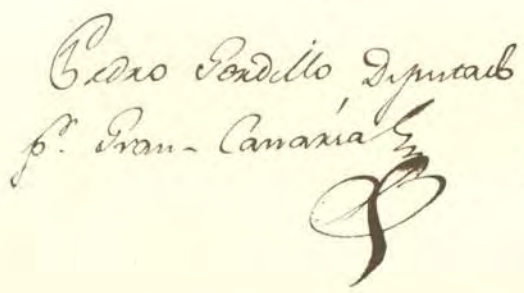 Pedro Gordillo, Diputado
pr. Gran-Canaria